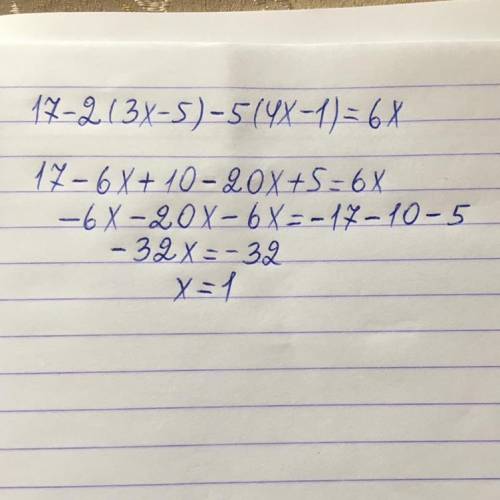 17-2(3x-5)-5(4x-1)=6x
17-6x+10-20x+5=6x
-6x-20x-6x=-17-10-5
-32x=-32
x=1